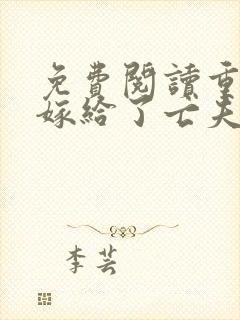 免費閱讀重
嫁給了亡夫
李芸